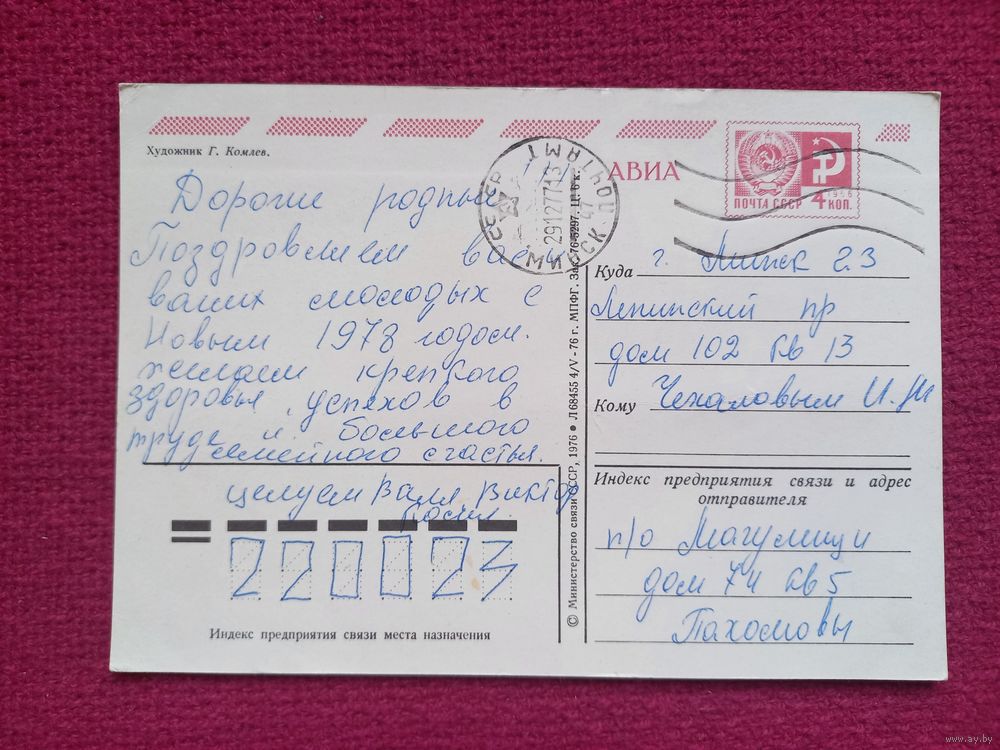 Художник Г. Комлев.
Дорогие родные
Поздровляем вас и
ваших молодых с
Новым 1978 годом.
желаем крепкого
здоровья, успехов в
труде и большого
семейного счастья.
целуем Валя Виктор
Индекс предприятия связи места назначения
220023
© Министерство связи СССР, 1976 ● Л 68455 4/V - 76 г. МПФГ. Зак. 76-5297. Ц. 6 к.
МИНСК ПОЧТАМТ
291277 13
АВИА
ПОЧТА СССР 4 КОП.
1966
Куда г. Минск 23
Ленинский пр
дом 102 кв 13
Кому Чекаловым И. М
Индекс предприятия связи и адрес
отправителя
п/о
дом 74 кв 5
Пахомовы
www.ay.by